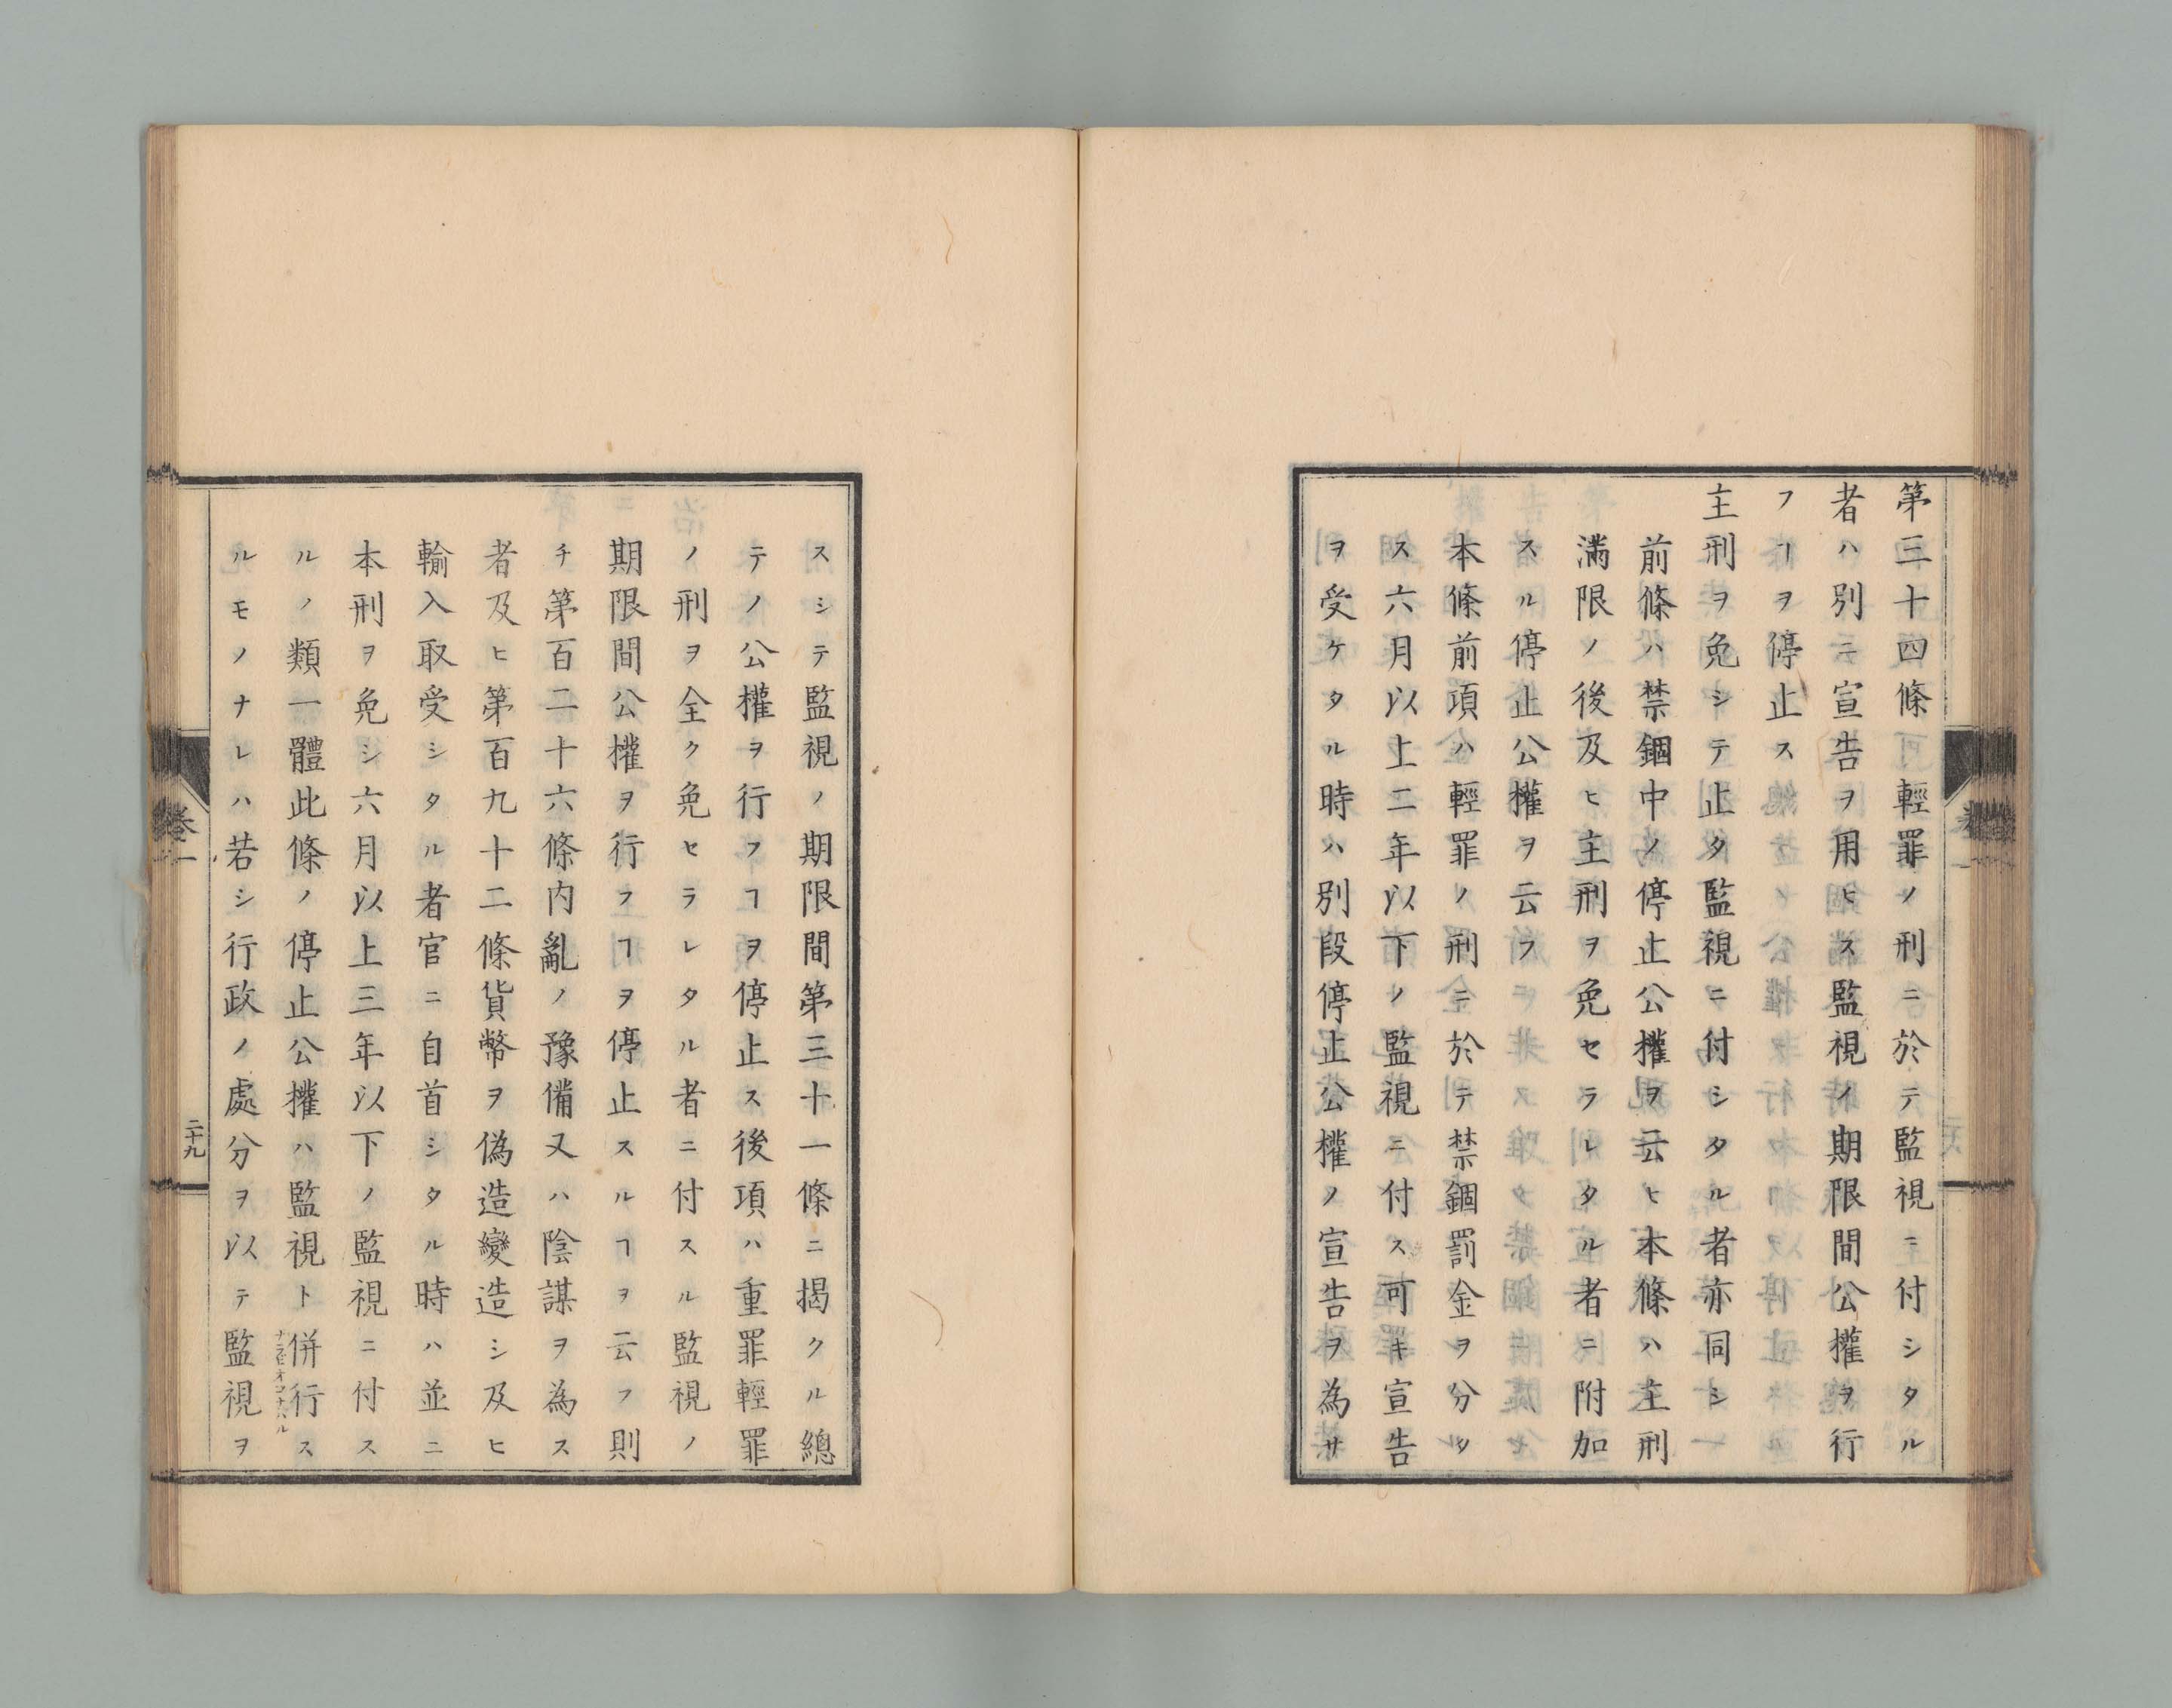 第三十四條可輕罪ノ刑ニ於テ監視ニ付シタル
者ハ別ニ宣告ヲ用ヒス監視ノ期限間公權ヲ行
フヿヲ停止ス
主刑ヲ免シテ止タ監視ニ付シタル者亦同シ
前條ハ禁錮中ノ停止公權ヲ云ヒ本條ハ主刑
滿限ノ後及ヒ主刑ヲ免セラレタル者ニ附加
スル停止公權ヲ云フ
本條前項ハ輕罪ノ刑ニ於テ禁錮罰金ヲ分タ
ス六月以上二年以下ノ監視ニ付ス可キ宣告
ヲ受ケタル時ハ別段停止公權ノ宣告ヲ為サ
スシテ監視ノ期限間第三十一條ニ揭クル總
テノ公權ヲ行フヿヲ停止ス後項ハ重罪輕罪
ノ刑ヲ全ク免セラレタル者ニ付スル監視ノ
期限間公權ヲ行フヿヲ停止スルヿヲ云フ則
チ第百二十六條内亂ノ豫備又ハ陰謀ヲ為ス
者及ヒ第百九十二條貨幣ヲ偽造變造シ及ヒ
輸入取受シタル者官ニ自首シタル時ハ並ニ
本刑ヲ免シ六月以上三年以下ノ監視ニ付ス
ルノ類一體此條ノ停止公權ハ監視ト併行ス
ルモノナレハ若シ行政ノ處分ヲ以テ監視ヲ
卷一
二十九